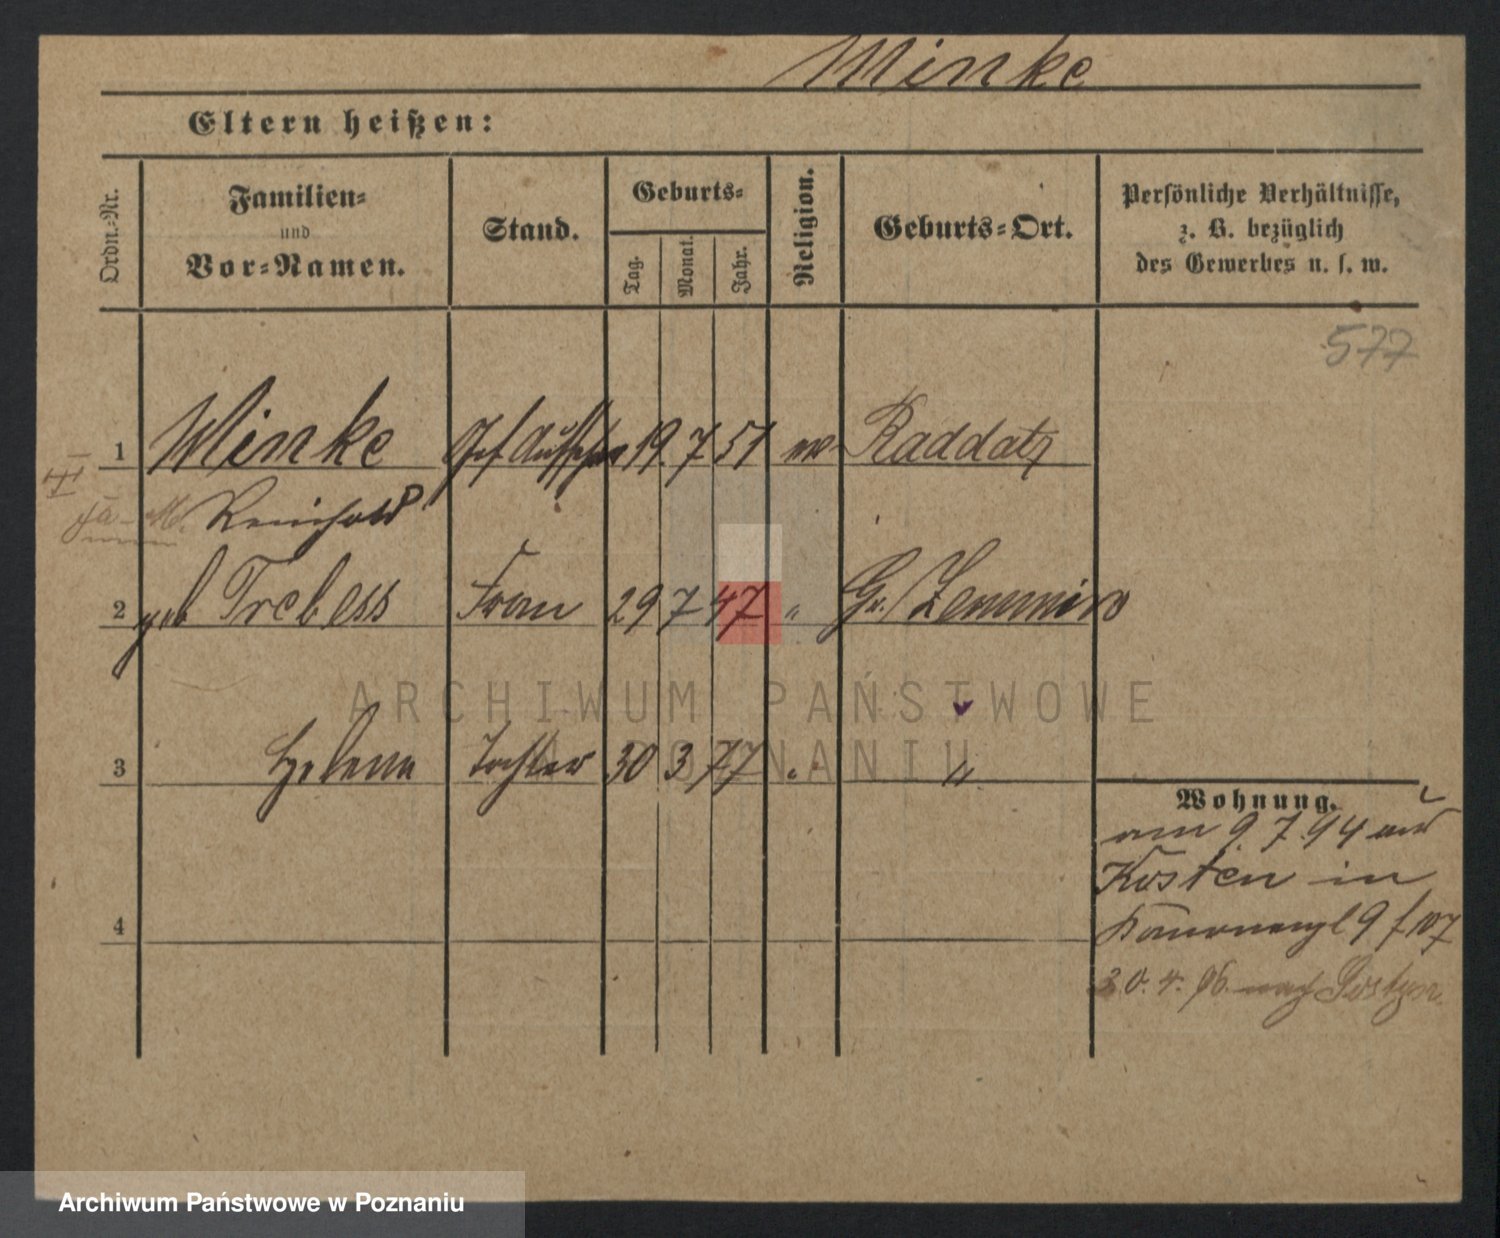 Minke
Eltern heißen:
Ordn.-Nr.
Familien-
und
Vor-Namen.
Stand.
Geburts-
Tag.
Monat.
Jahr.
Religion.
Geburts-Ort.
Persönliche Verhältnisse,
z. B. bezüglich
des Gewerbes u. s. w.
577
1 Minke Gef Aufseher 19. 7 51 ev Raddatz
Reinhold
2 geb Trebess Frau 29 7 47 " Gr. Zemmin
ARCHIWUM PAŃSTWOWE
POZNANIU
3 Helena Tochter 30 3 77 " "
Wohnung.
am 9. 7. 94 aus
Kosten in
4
30. 4. 96. nach Gostyn.
Archiwum Państwowe w Poznaniu